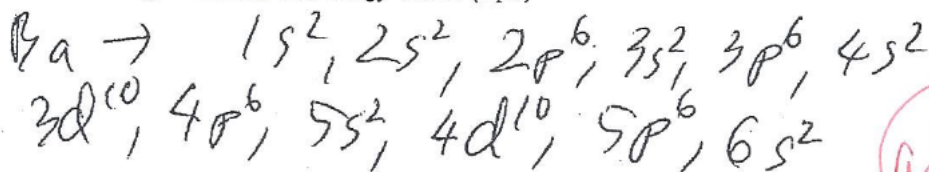 Ba → 1s², 2s², 2p⁶, 3s², 3p⁶, 4s²
3d¹⁰, 4p⁶, 5s², 4d¹⁰, 5p⁶, 6s²